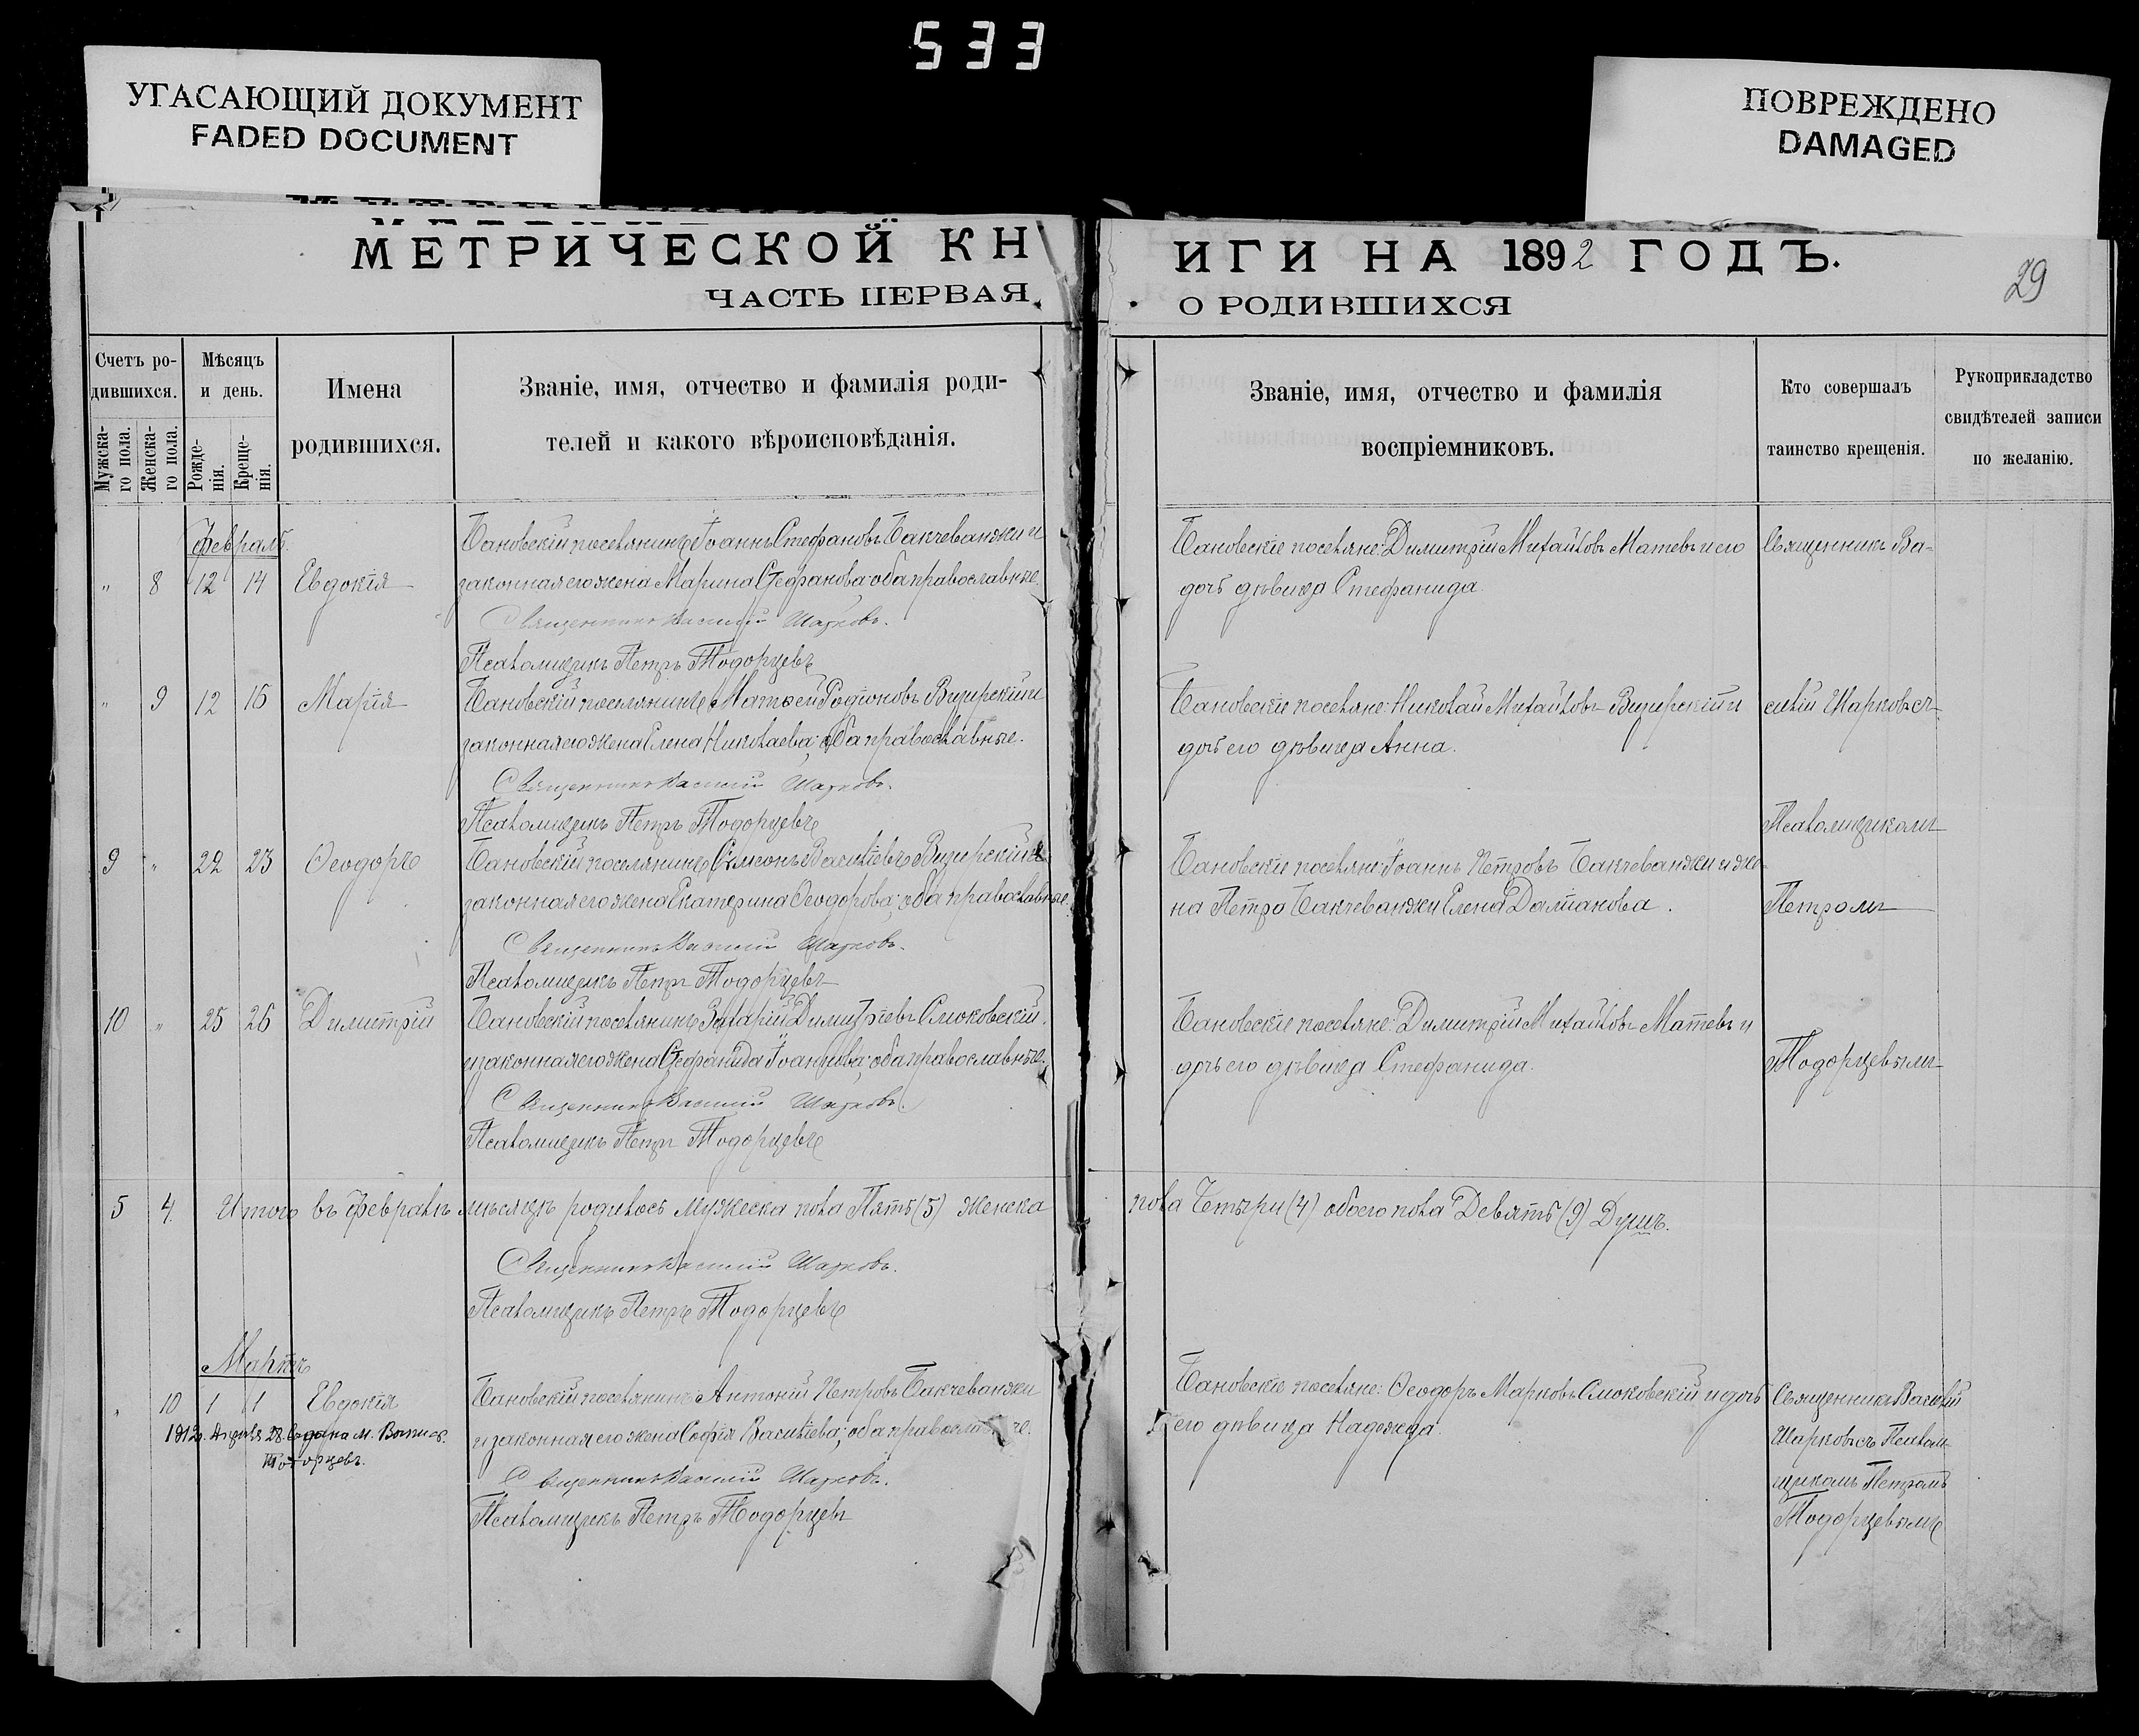 533
УГАСАЮЩИЙ ДОКУМЕНТ
FADED DOCUMENT
ПОВРЕЖДЕНО
DAMAGED
МЕТРИЧЕСКОЙ КН
ИГИ НА 1892 ГОДЪ.
ЧАСТЬ ПЕРВАЯ
О РОДИВШИХСЯ
29
Счетъ ро-
дившихся.
Мужска-
го пола.
Женска-
го пола.
Мѣсяцъ
и день.
Рожде-
нія.
Креще-
нія.
Имена
родившихся.
Званіе, имя, отчество и фамилія роди-
телей и какого вѣроисповѣданія.
Званіе, имя, отчество и фамилія
воспріемниковъ.
Кто совершалъ
таинство крещенія.
Рукоприкладство
свидѣтелей записи
по желанію.
Февраль
" 8 12 14 Евдокія
Бановскій поселянинъ Іоаннъ Стефановъ Бакчеванжи и
законная его жена Марина Стефанова; оба православные.
Священникъ Василій Шарковъ.
Псаломщикъ Петръ Тодорцевъ
Бановскіе поселяне: Димитрій Михайловъ Матевъ и его
дочь дѣвица Стефанида.
Священникъ Ва-
" 9 12 16 Марія
Бановскій поселянинъ Матѳей Родіоновъ Визирскій и
законная его жена Елена Николаева; оба православные.
Священникъ Василій Шарковъ.
Псаломщикъ Петръ Тодорцевъ
Бановскіе поселяне: Николай Михайловъ Визирскій и
дочь его дѣвица Анна.
силій Шарковъ съ
Псаломщикомъ
9 " 22 23 Ѳеодоръ
Бановскій поселянинъ Симеонъ Василіевъ Визирскій и
законная его жена Екатерина Ѳеодорова; оба православные.
Священникъ Василій Шарковъ.
Псаломщикъ Петръ Тодорцевъ
Бановскіе поселяне: Іоаннъ Петровъ Бакчеванжи и же-
на Петра Бакчеванжи Елена Даміанова.
Петромъ
10 " 25 26 Димитрій
Бановскій поселянинъ Захарій Димитріевъ Смоковскій
и законная его жена Стефанида Іоаннова; оба православные.
Священникъ Василій Шарковъ.
Псаломщикъ Петръ Тодорцевъ
Бановскіе поселяне: Димитрій Михайловъ Матевъ и
дочь его дѣвица Стефанида.
Тодорцевымъ
5 4 Итого въ Февралѣ мѣсяцѣ родилось мужеска пола Пять (5) женска
пола Четыри (4) обоего пола Девять (9) Душъ.
Священникъ Василій Шарковъ.
Псаломщикъ Петръ Тодорцевъ
Мартъ
" 10 1 1 Евдокія
1912г. Апрѣля 28. выдана м. Выпись.
Тодорцевъ.
Бановскій поселянинъ Антоній Петровъ Бакчеванжи
и законная его жена Софія Василіева; оба православные.
Священникъ Василій Шарковъ.
Псаломщикъ Петръ Тодорцевъ
Бановскіе поселяне: Ѳеодоръ Марковъ Смоковскій и дочь
его дѣвица Надежда.
Священникъ Василій
Шарковъ съ Псалом-
щикомъ Петромъ
Тодорцевымъ